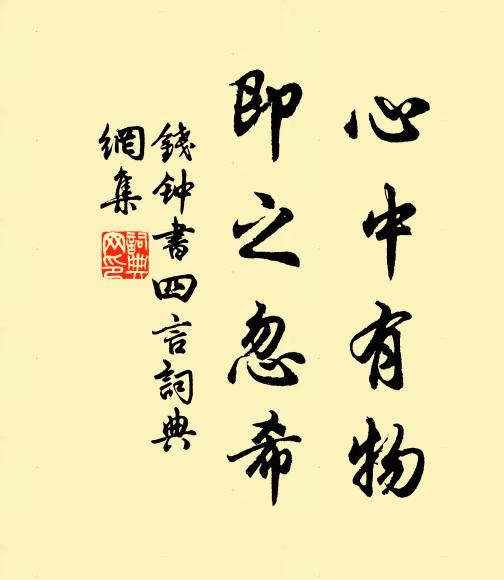 心中有物
即之忽希
錢钟書四言詞典
網集
詞典
网印